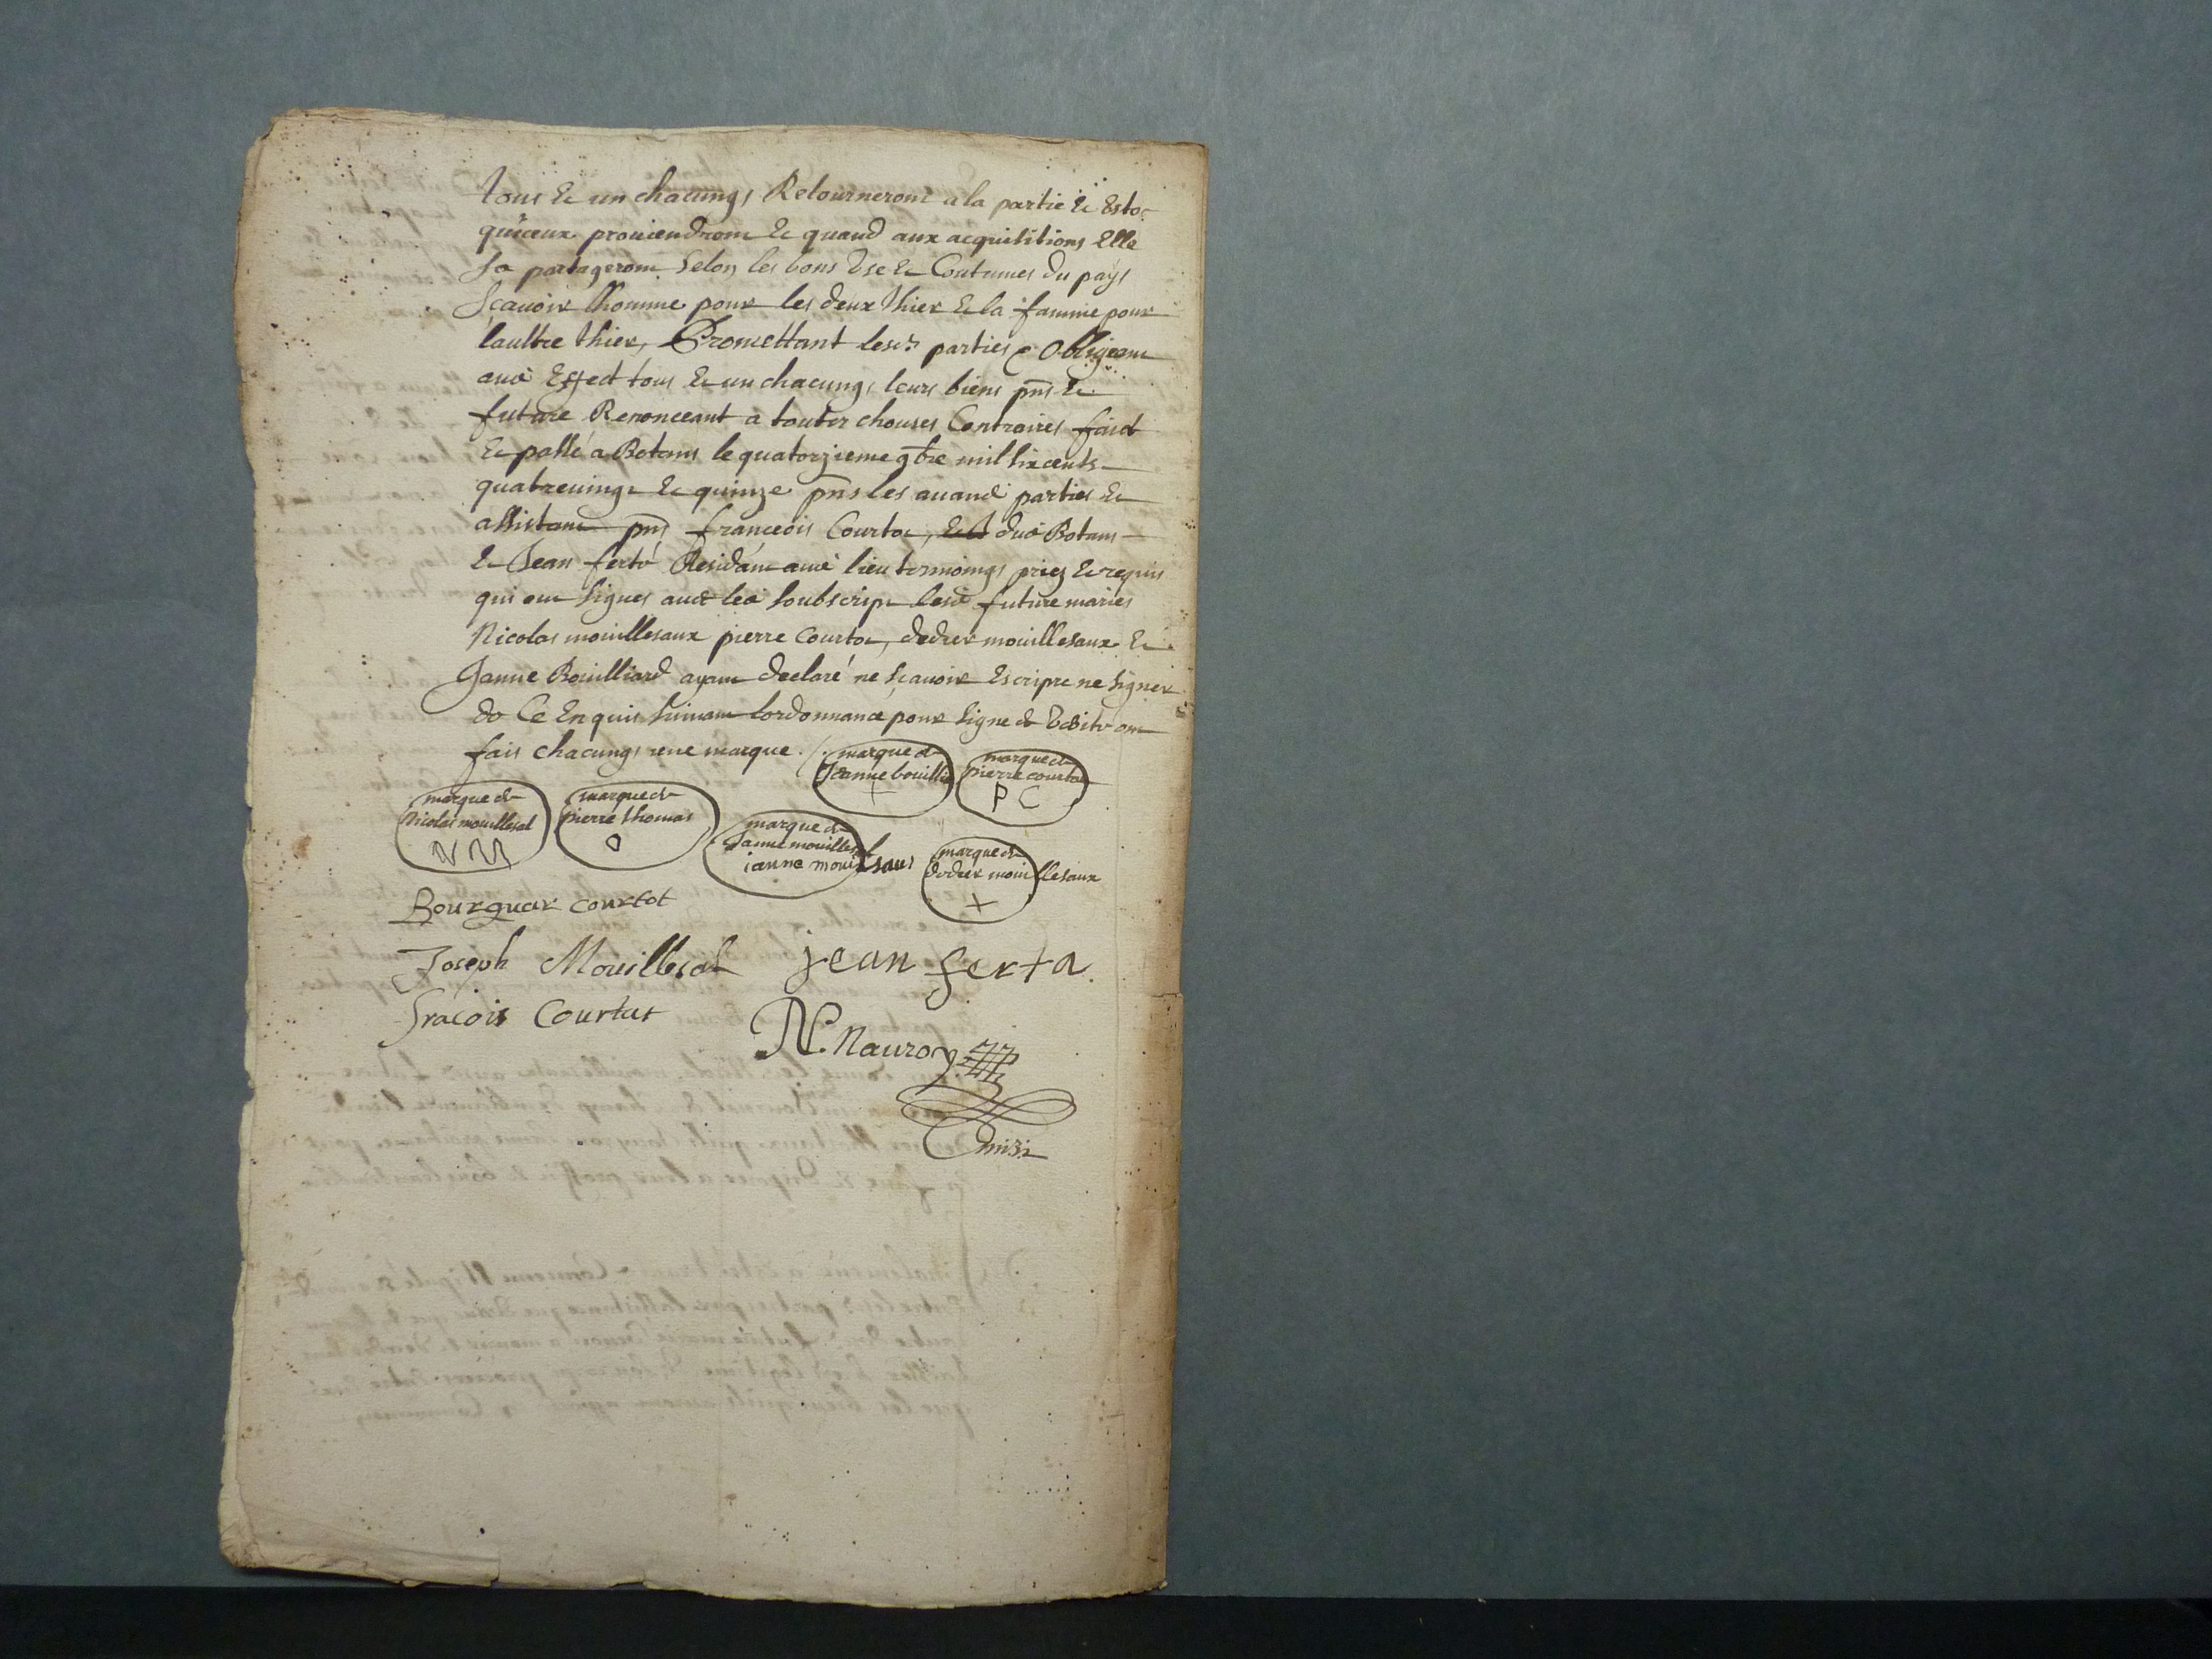 tous & un chacungs Retourneront a la partie & Estoc
quiceux prouiendront & quand aux acquisitions Elle
Se partageront Selon les bons Vse & Coutumes du pays
Scauoir lhomme pour les deux thier & la famme pour
laultre thier, Promettant lesd. parties Obligeant
aud Effect tous & un chacungs leurs biens pns &
future Renonceant a toutes chouses Contraires faict
& passé a Botans le quatorzieme 9bre mil six cents
quatreuingt & quinze pns les auand parties &
assistant pns franceois Courtot, dud Botans
& Jean ferta Residant aud lieu tesmoings priez & requis
qui ont signes aud leã soubscript lesd future maries
Nicolas mouillesaux pierre Courtot, dedier mouillesaux &
Janne Bouilliard ayant declaré ne scauoir Escripre ne signer
de Ce Enquis suiuant lordonnance pour signe de Verité ont
fais chacungs vne marque.
marque de
Jeanne bouillia
+
marque de
pierre courtot
P C
marque de
Nicolas mouillesal
N M
marque de
pierre thomas
O
marque de
Janne mouillesal
ianne mouilsaus
marque de
dedier mouillesaux
+
Bourquar courtot
Joseph Mouillesal
jean ferta.
fracois Courtut
N. Nauroy